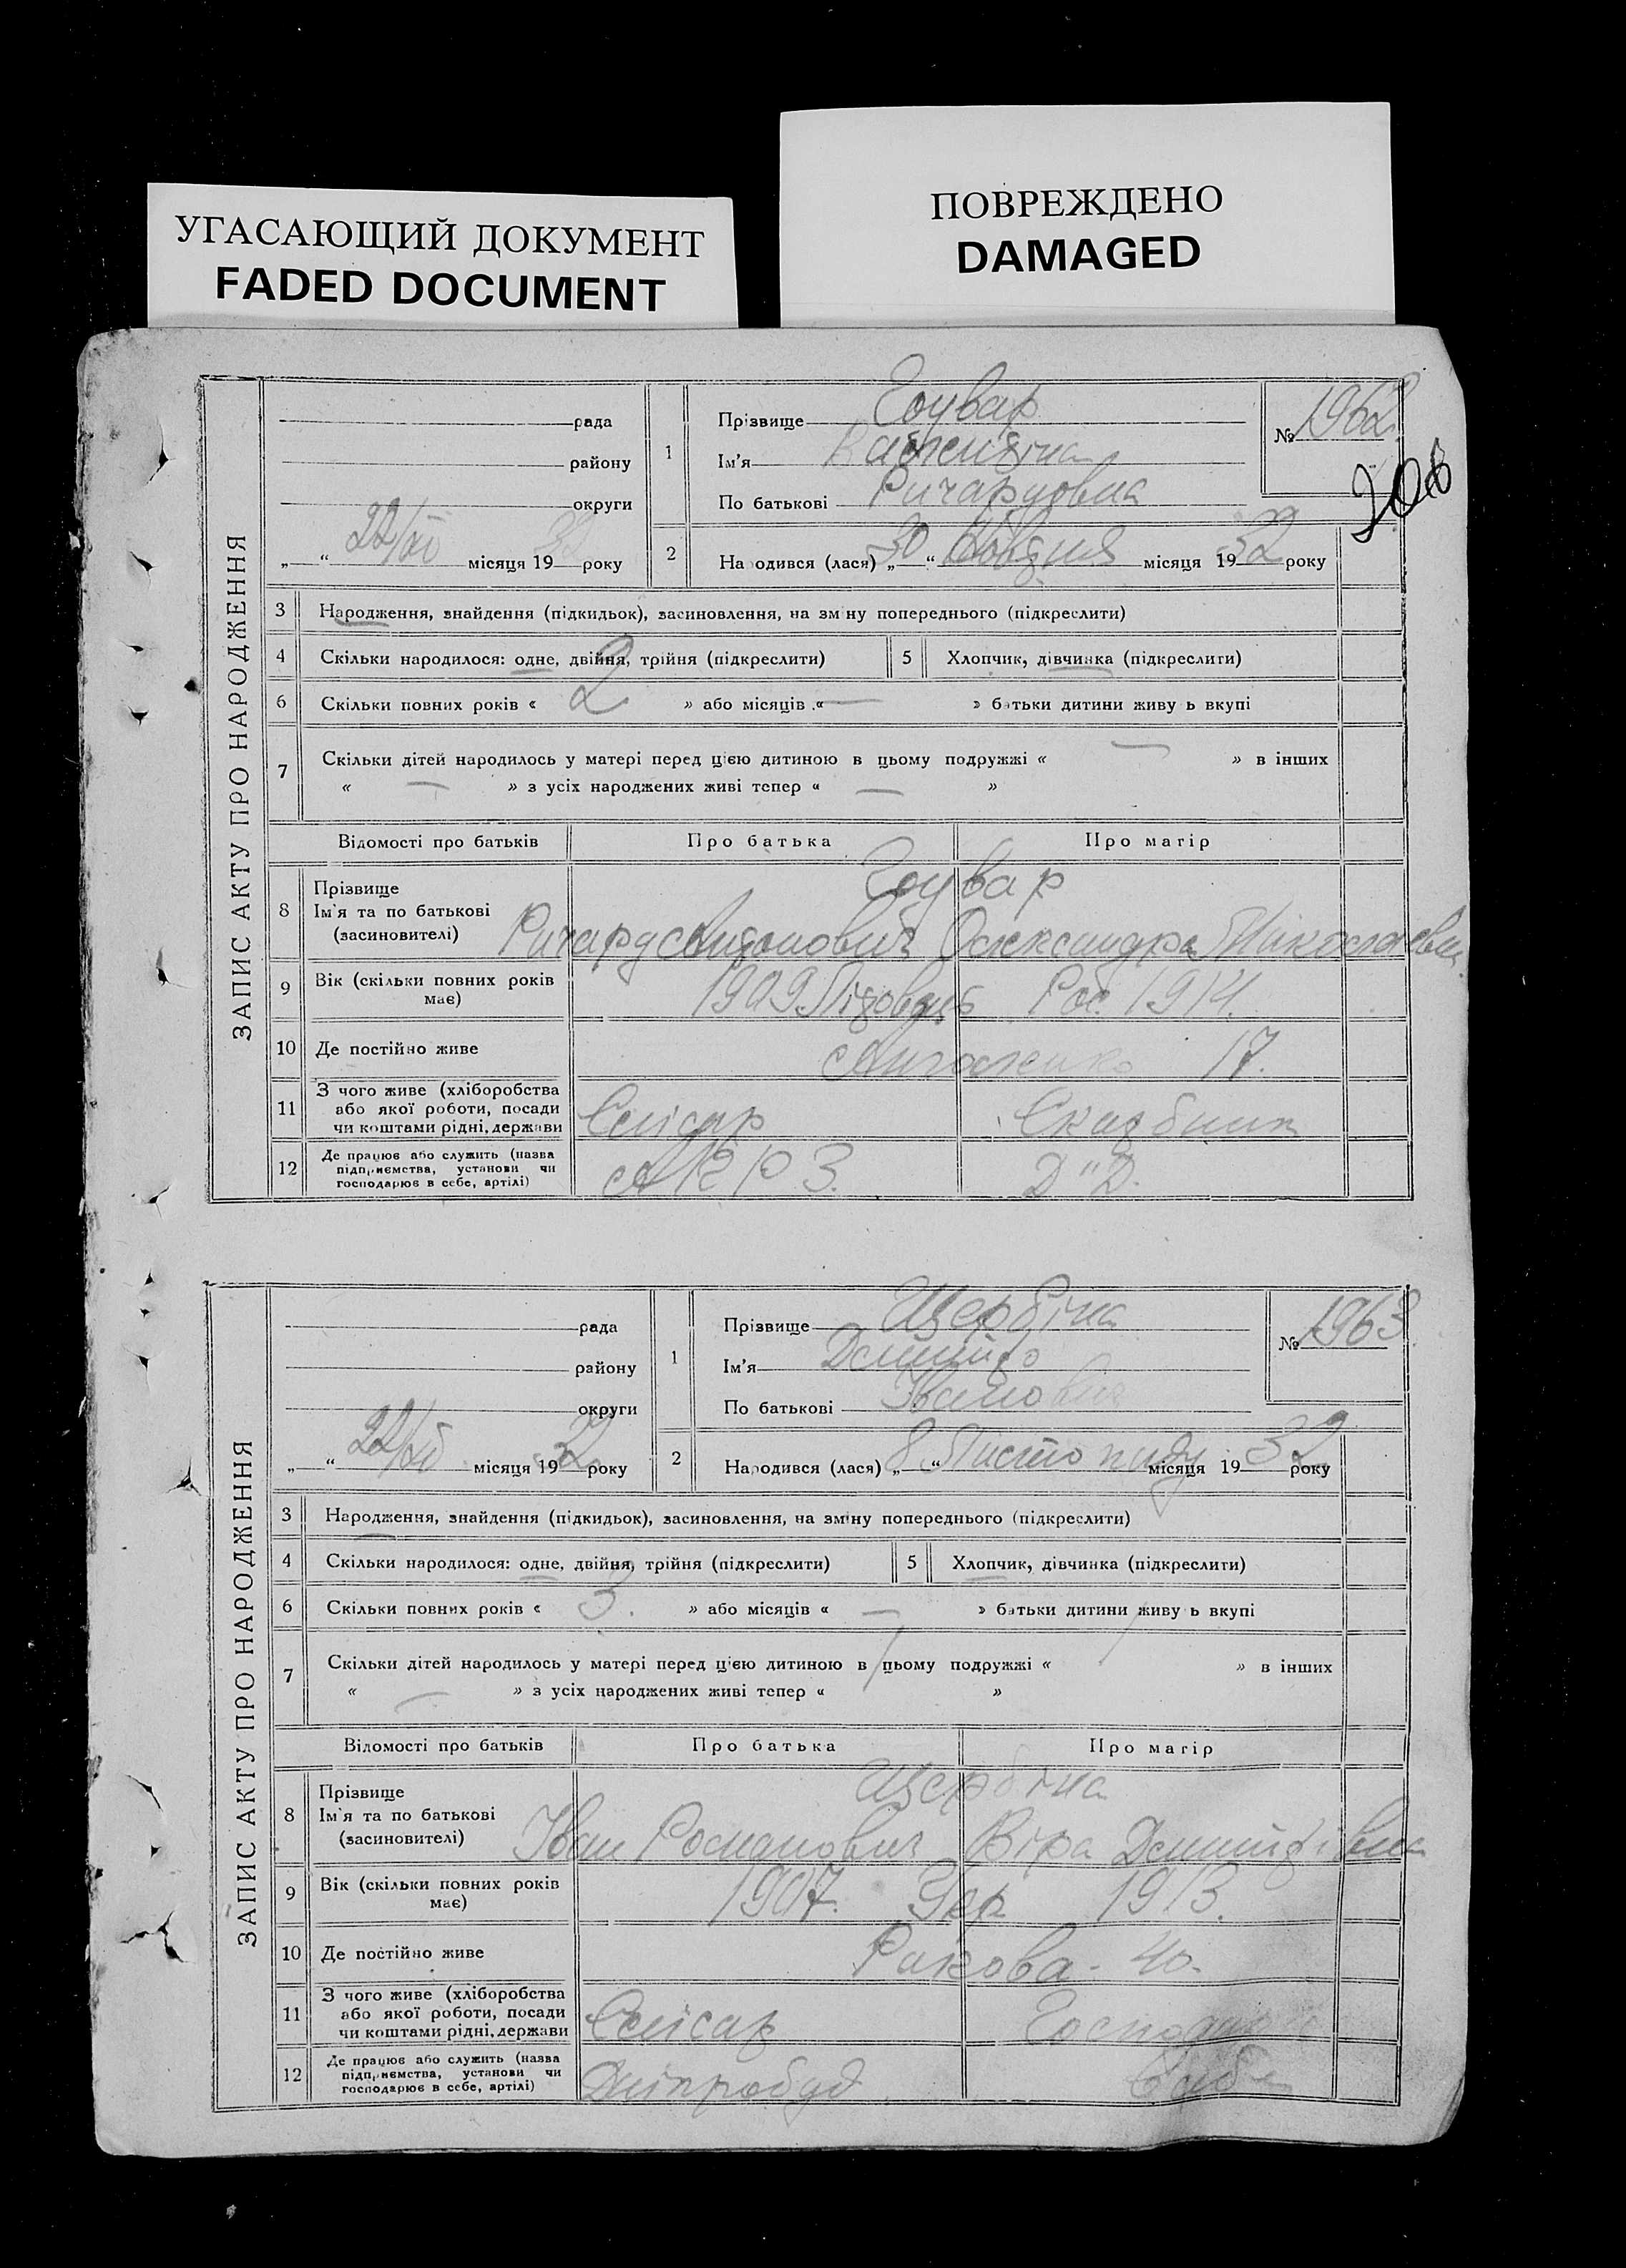 УГАСАЮЩИЙ ДОКУМЕНТ
FADED DOCUMENT
ПОВРЕЖДЕНО
DAMAGED
ЗАПИС АКТУ ПРО НАРОДЖЕННЯ
рада
району
округи
„ “ 22/XII місяця 19 32 року
1
Прізвище Гоувар
Ім'я Валентіна
По батькові Ричардовна
№ 1962
206
2
Народився (лася) „ 30 “ Жовтня місяця 19 32 року
3 Народження, знайдення (підкидьок), засиновлення, на зміну попереднього (підкреслити)
4 Скільки народилося: одне, двійня, трійня (підкреслити)
5 Хлопчик, дівчинка (підкреслити)
6 Скільки повних років « 2 » або місяців « — » батьки дитини живуть вкупі
7 Скільки дітей народилось у матері перед цією дитиною в цьому подружжі « — » в інших
« — » з усіх народжених живі тепер « — »
Відомості про батьків Про батька Про матір
8 Прізвище Гоувар
Ім'я та по батькові
(засиновителі) Ричард Антонович Олександра Ніколаевна
9 Вік (скільки повних років
має) 1909 Рос. 1914.
10 Де постійно живе 17.
11 З чого живе (хліборобства
або якої роботи, посади
чи коштами рідні, держави Слісар
12 Де працює або служить (назва
підприємства, установи чи
господарює в себе, артілі) АКРЗ. Д"Д.
ЗАПИС АКТУ ПРО НАРОДЖЕННЯ
рада
району
округи
„ “ 22/XII місяця 19 32 року
1
Прізвище Щербіна
Ім'я Дмитро
По батькові Іванович
№ 1963
2
Народився (лася) „ 8 “ Листопаду місяця 19 32 року
3 Народження, знайдення (підкидьок), засиновлення, на зміну попереднього (підкреслити)
4 Скільки народилося: одне, двійня, трійня (підкреслити)
5 Хлопчик, дівчинка (підкреслити)
6 Скільки повних років « 3. » або місяців « — » батьки дитини живуть вкупі
7 Скільки дітей народилось у матері перед цією дитиною в цьому подружжі « » в інших
« — » з усіх народжених живі тепер « »
Відомості про батьків Про батька Про матір
8 Прізвище Щербіна
Ім'я та по батькові
(засиновителі) Іван Романович Віра Дмитрівна
9 Вік (скільки повних років
має) 1907. Укр 1913.
10 Де постійно живе Ракова - 40.
11 З чого живе (хліборобства
або якої роботи, посади
чи коштами рідні, держави Слісар
12 Де працює або служить (назва
підприємства, установи чи
господарює в себе, артілі) Дніпробуд